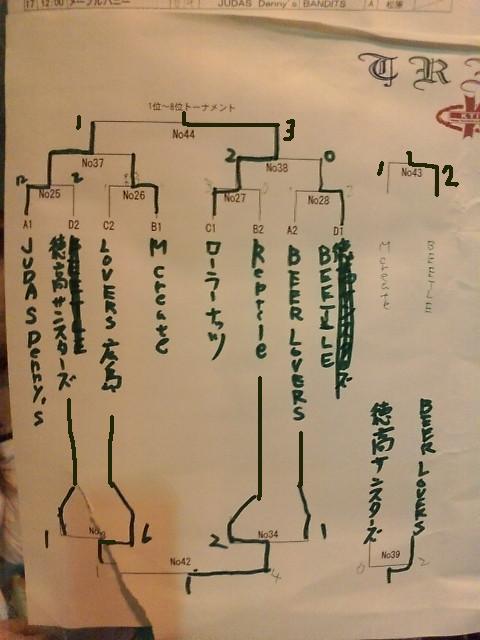 17 12:00 メープルバニー JUDAS Denny's BANDITS A 松原
TR
1位~8位トーナメント
1 No44 3
No37 2 No38 0
1 No43 2
2 No25 2 No26 No27 No28
A1 D2 C2 B1 C1 B2 A2 D1
JUDAS Denny's
徳高サンスターズ
LOVERS 広島
Mcreate
ローラーナッツ
Reptile
BEER LOVERS
BEETLE
Mcreate
BEETLE
徳高サンスターズ
BEER LOVERS
1 6 2 No34 1
No42 4
0 No39 2